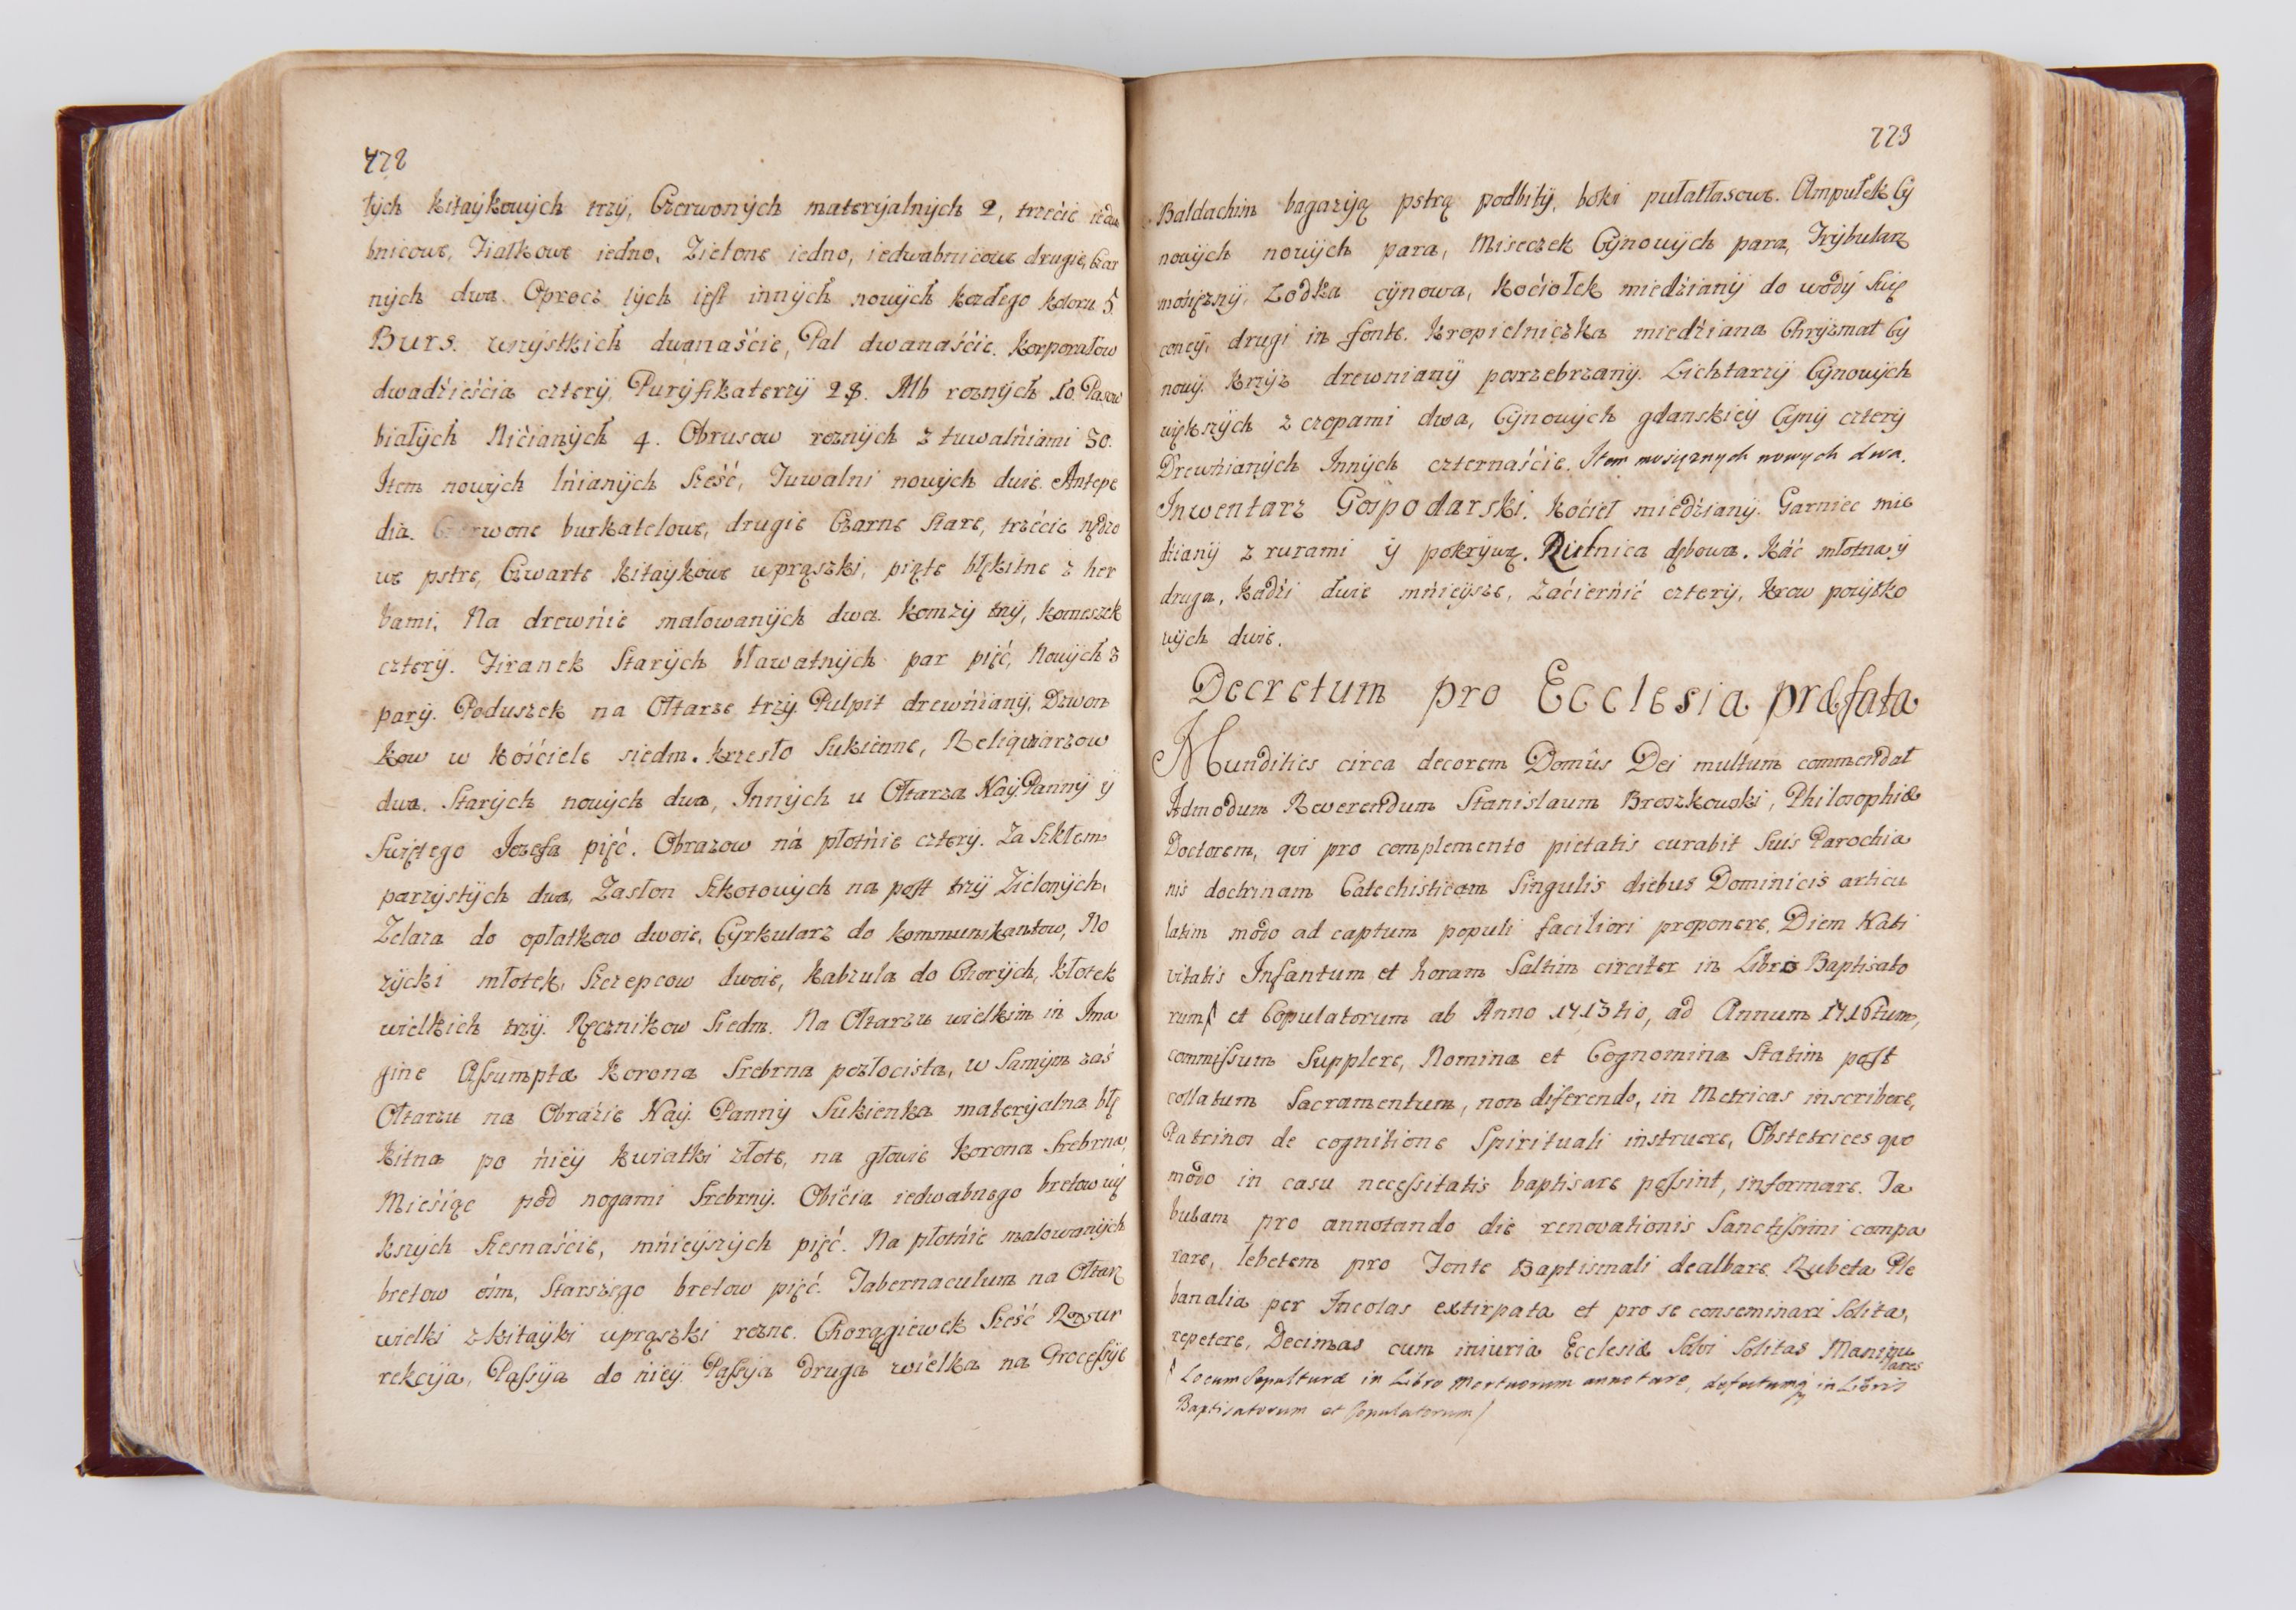 772
łych kitaykowych trzy, Czerwonych materyalnych 2, trzećie iedwa
bnicowe, Fiałkowe iedno, Zielone iedno, iedwabnicowe drugie, Czar
nych dwa. Oprocz tych iest innych nowych każdego koloru 5.
Burs. wszystkich dwanaśćie, Pal dwanaśćie. Korporałow
dwadźieśćia cztery, Puryfikaterzy 28. Alb roznych 10. Pasow
białych Nićianych 4. Obrusow roznych z tuwalniami 30.
Item nowych lńianych sześć, Tuwalni nowych dwie. Antepe
dia. Czerwone burkatelowe, drugie Czarne stare, trzećie
we pstre, Czwarte kitaykowe w prąszki, piąte błękitne z her
bami, Na drewńie malowanych dwa. Komży trzy, Komeszek
cztery. Firanek starych bławatnych par pięć, Nowych 3
pary. Poduszek na Ołtarze trzy. Pulpit drewńiany. Dzwon
kow w Kośćiele siedm. Krzesło sukienne, Reliqwiarzow
dwa. starych nowych dwa, Innych u Ołtarza Nay. Panny y
Swiętego Jozefa pięć. Obrazow ná płotńie cztery. Za szkłem
parzystych dwa, Zasłon szkotowych na post trzy Zielonych,
Zelaza do opłatkow dwoie, Cyrkularz do kommunikantow, No
zycki młotek, szczepcow dwoie, kabzula do Chorych, kłotek
wielkich trzy. Ręcznikow siedm. Na Ołtarzu wielkim in Ima
gine Assumptæ Korona srebrna pozłocista, w samym zaś
Ołtarzu na Obraźie Nay. Panny Sukienka materyalna błę
kitna po ńiey kwiatki złote, na głowie Korona srebrna,
Mieśiąc pod nogami srebrny. Obićia iedwabnego bretow wię
kszych szesnaśćie, mńieyszych pięć. Na płotńie malowanych
bretow ośm, starszego bretow pięć. Tabernaculum na Ołtarz
wielki z kitayki w prąszki rozne. Chorągiewek sześć Resur
rekcyia, Passyia do ńiey. Passyia druga wielka na Processyie
773
Baldachim bagazyią pstrą podbity, boki pułatłasowe. Ampułek Cy
nowych nowych para, Miseczek Cynowych para, Trybularz
mośiężny, Łodka cynowa, Kociołek miedźiany do wody świę
coney, drugi in fonte. Kropielniczka miedźiana Chryzmał Cy
nowy. Krzyż drewniany posrzebrzany. Lichtarzy Cynowych
większych z czopami dwa, Cynowych gdanskiey Cyny cztery
Drewńianych Innych czternaśćie. Item mosięznych nowych dwa.
Inwentarz Gospodarski. Koćieł miedźiany. Garniec mie
dźiany z rurami y pokrywą. Rufnica dębowa. Káć młotna y
druga, Kadźi dwie mńieysze, Zaćierńić cztery, Krow pożytko
wych dwie.
Decretum pro Ecclesia præfata
Mundities circa decorem Domûs Dei multum commendat
Admodum Reverendum Stanislaum Broszkowski, Philosophiæ
Doctorem, qvi pro complemento pietatis curabit suis Parochia
nis doctrinam Catechisticam singulis diebus Dominicis articu
latim modo ad captum populi faciliori proponere. Diem Nati
vitatis Infantum et horam saltim circiter in Libro Baptisato
rum ſ et Copulatorum ab Anno 1713tio, ad Annum 1716tum,
commissum supplere, Nomina et Cognomina statim post
collatum Sacramentum, non diferendo, in Metricas inscribere,
Patrinos de cognitione Spirituali instruere, Obstetrices quo
modo in casu necessitatis baptisare possint, informare. Ta
bulam pro annotando die renovationis Sanctissimi compa
rare, lebetem pro Fonte Baptismali dealbare. Rubeta Ple
banalia per Incolas extirpata et pro se conseminari solita,
repetere, Decimas cum iniuria Ecclesiæ solvi solitas Manipu
lares
ſ Locum Sepulturæ in Libro Mortuorum annotare, in Libris
Baptisatorum et Copulatorum /